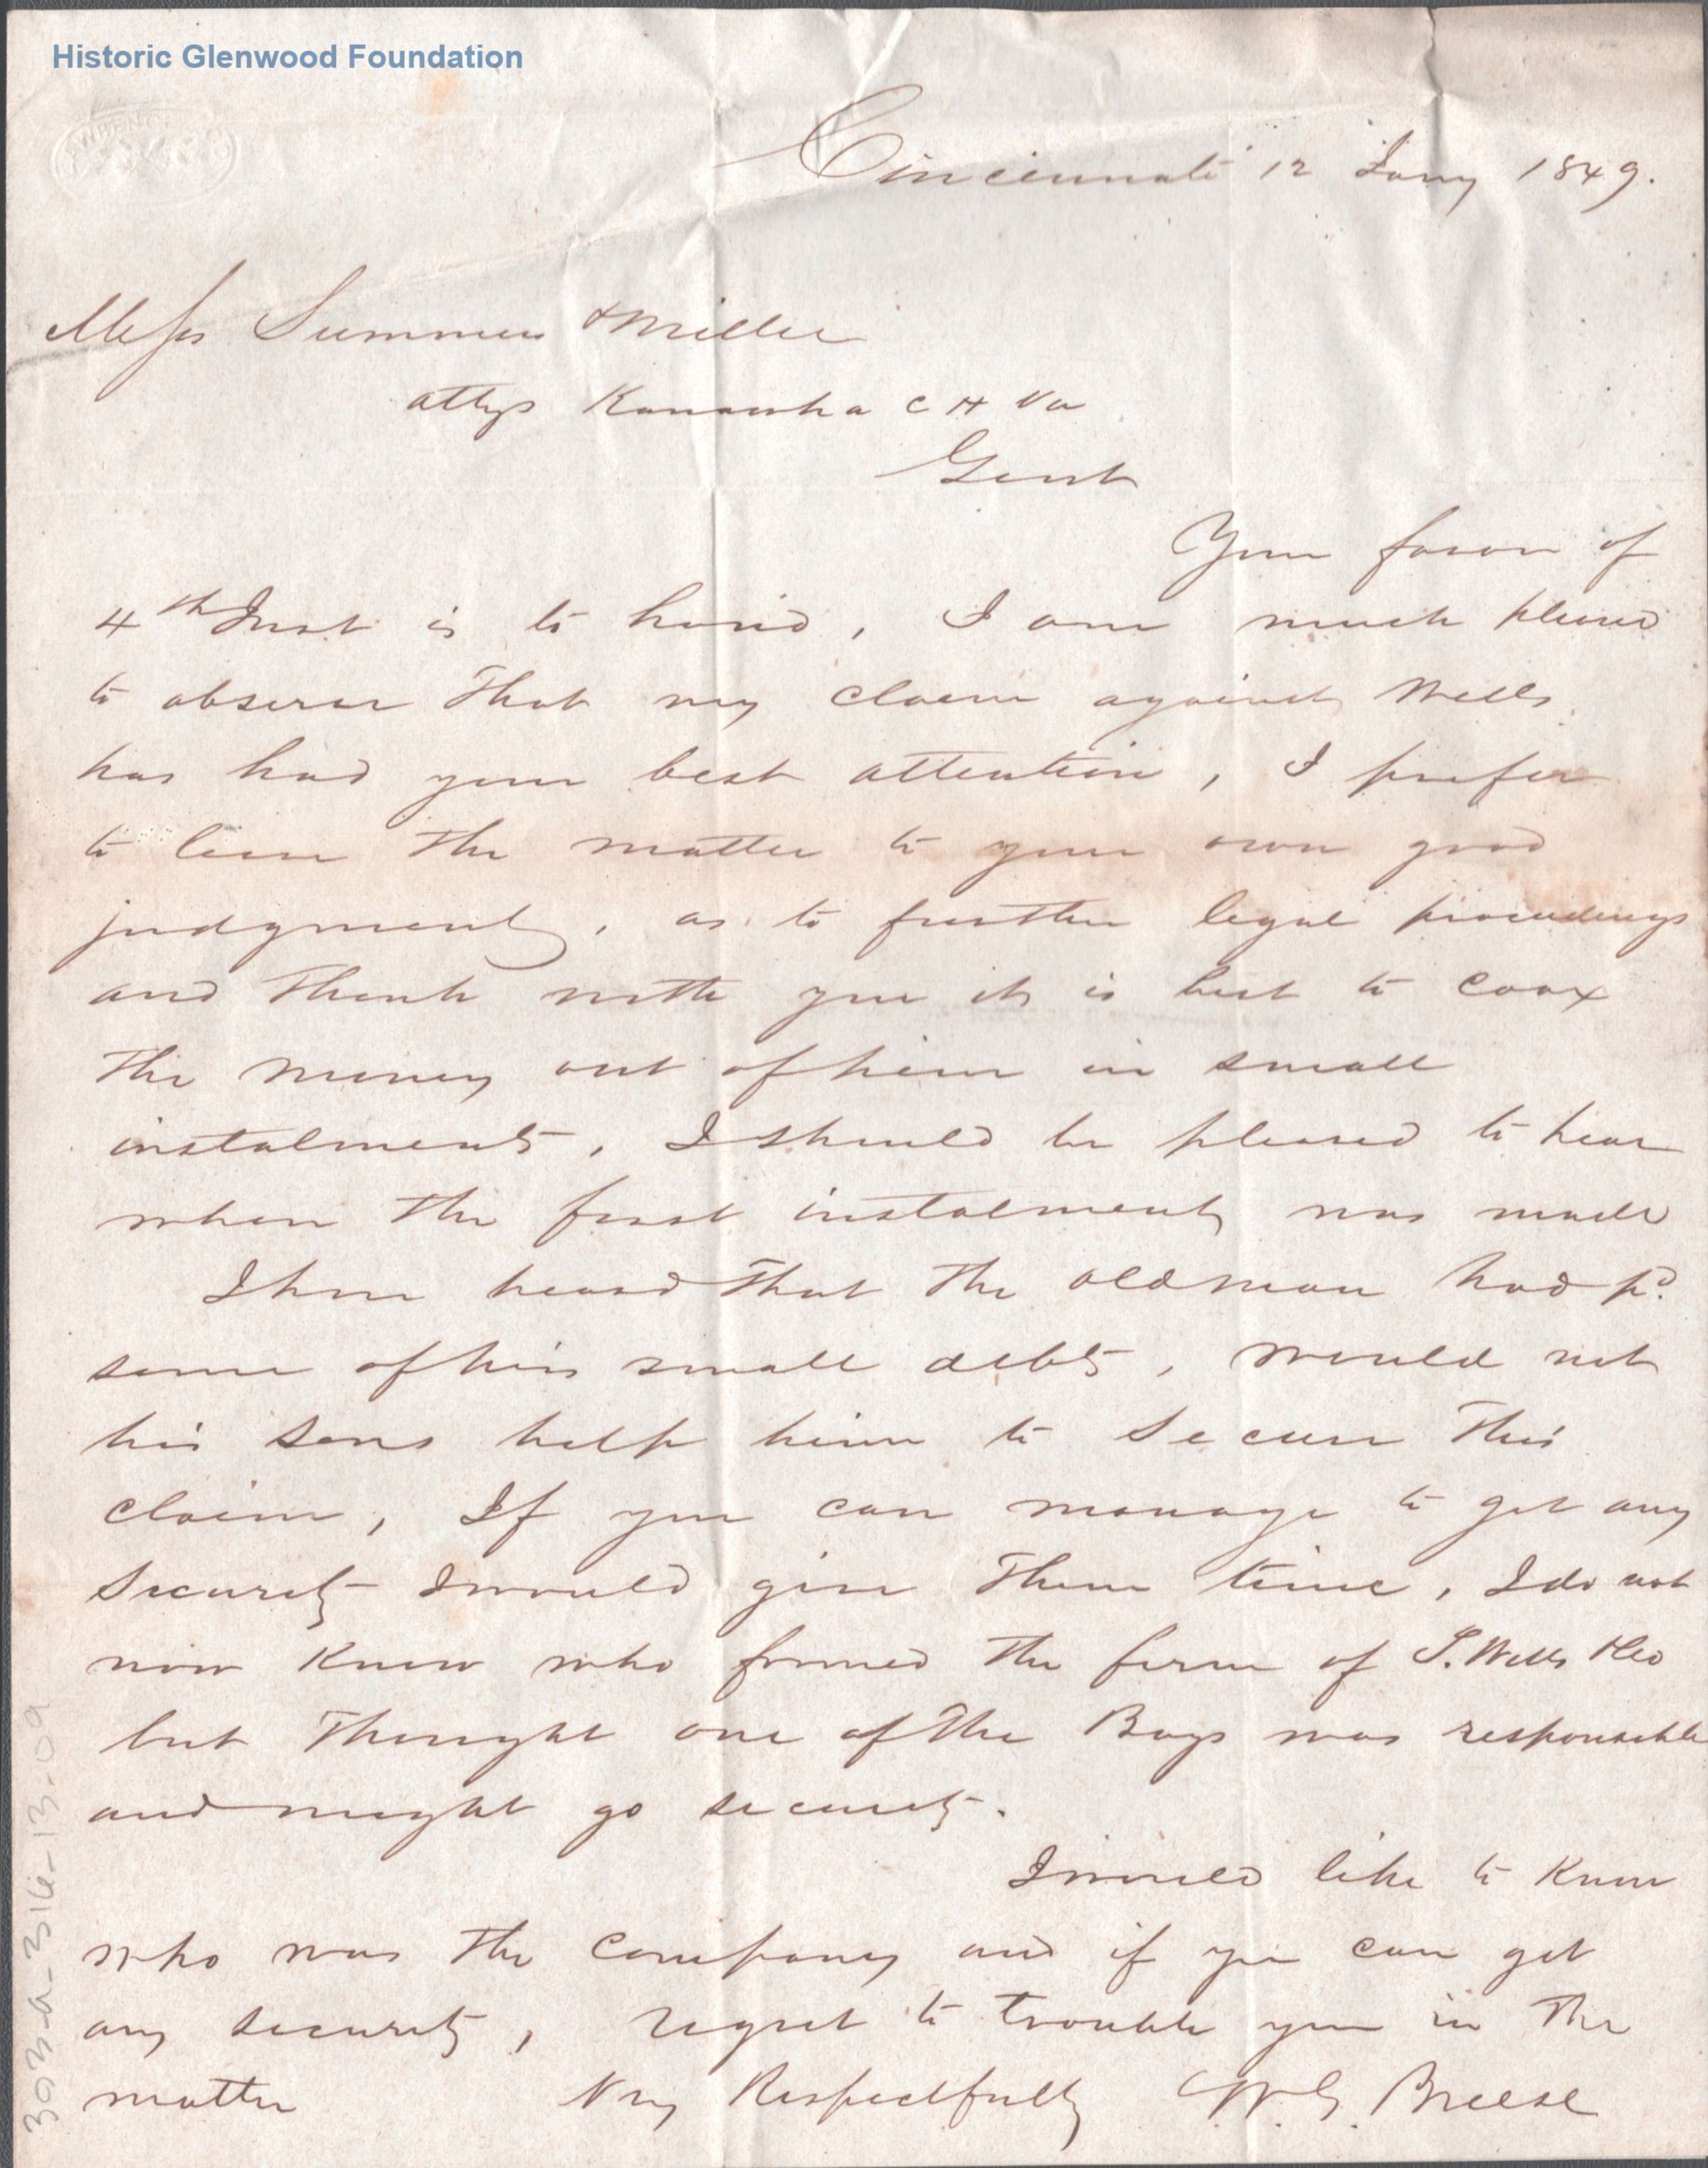 Historic Glenwood Foundation
Cincinnati 12 Jany 1849.
Messrs Summers & Miller
attys Kanawha C H Va
Gents
Your favor of
4th Inst is to hand, I am much pleased
to observe that my claim against Wells
has had your best attention, I prefer
to leave the matter to your own good
judgment, as to further legal proceedings
and think with you it is best to coax
the money out of him in small
instalments, I should be pleased to hear
when the first instalment was made
I have heard that the old man had pd.
some of his small debts, would not
his sons help him to secure this
claim, If you can manage to get any
security I would give them time, I do not
now know who formed the firm of S. Wells & Co
but thought one of the Boys was responsable
and might go security.
I would like to know
who was the company and if you can get
any security, regret to trouble you in the
matter Very Respectfully W. G. Breese
303-a-316-13-09